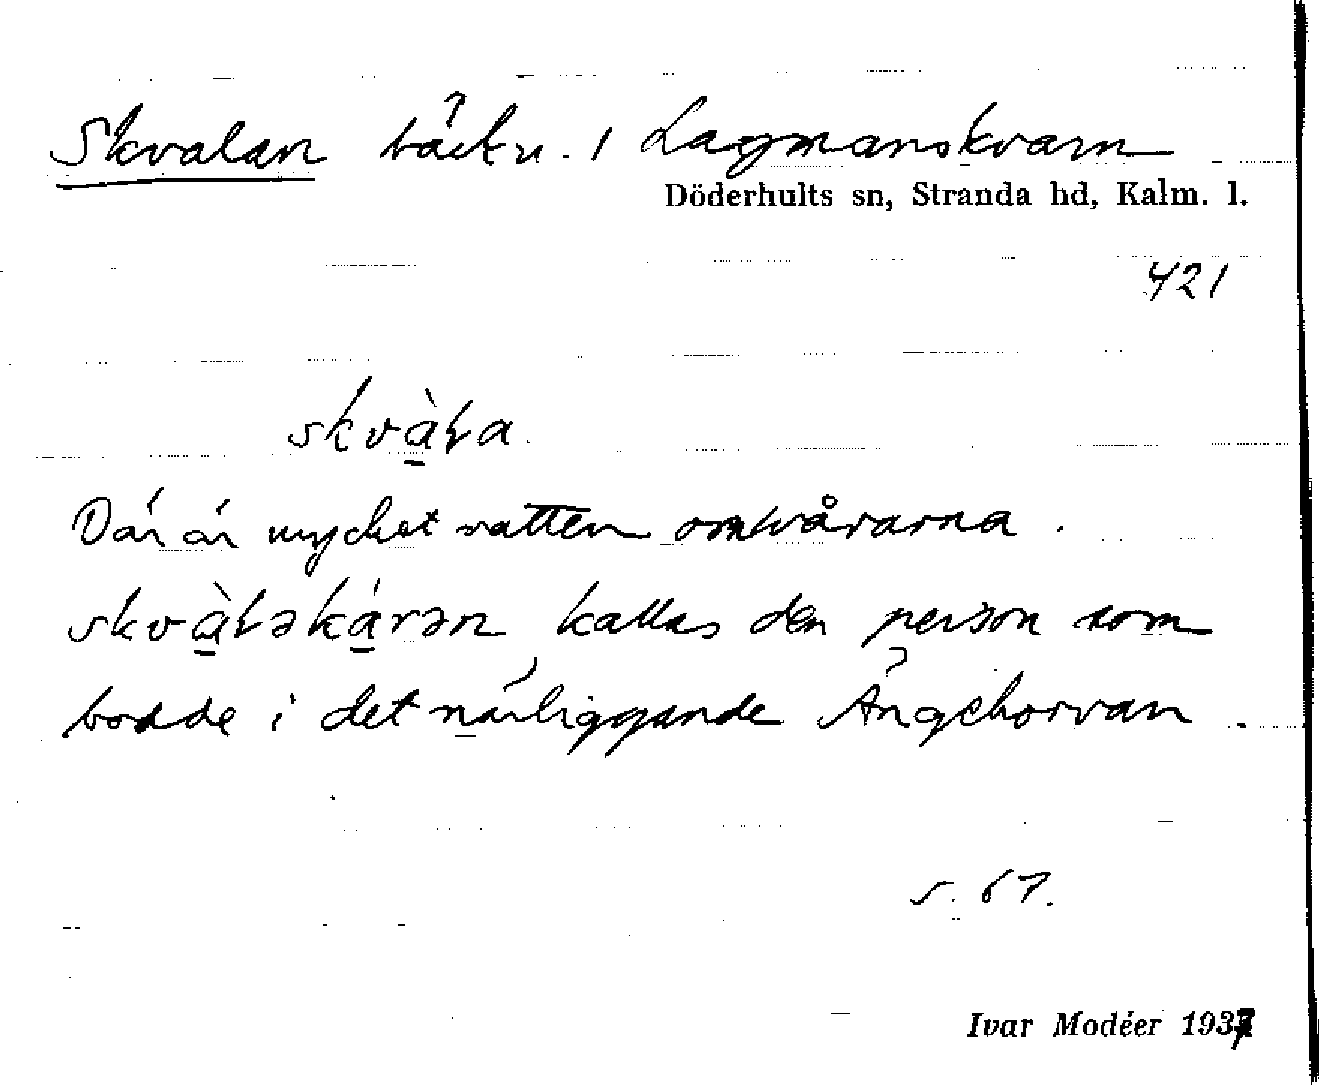 Skvalan bäck n. 1 Lagmanskvarn
Döderhults sn, Stranda hd, Kalm. l.
421
skvàła.
Där är mycket vatten om vårarna.
skvàłəkárən kallas den person som
bodde i det närliggande Ängehorvan.
s. 67.
Ivar Modéer 1937